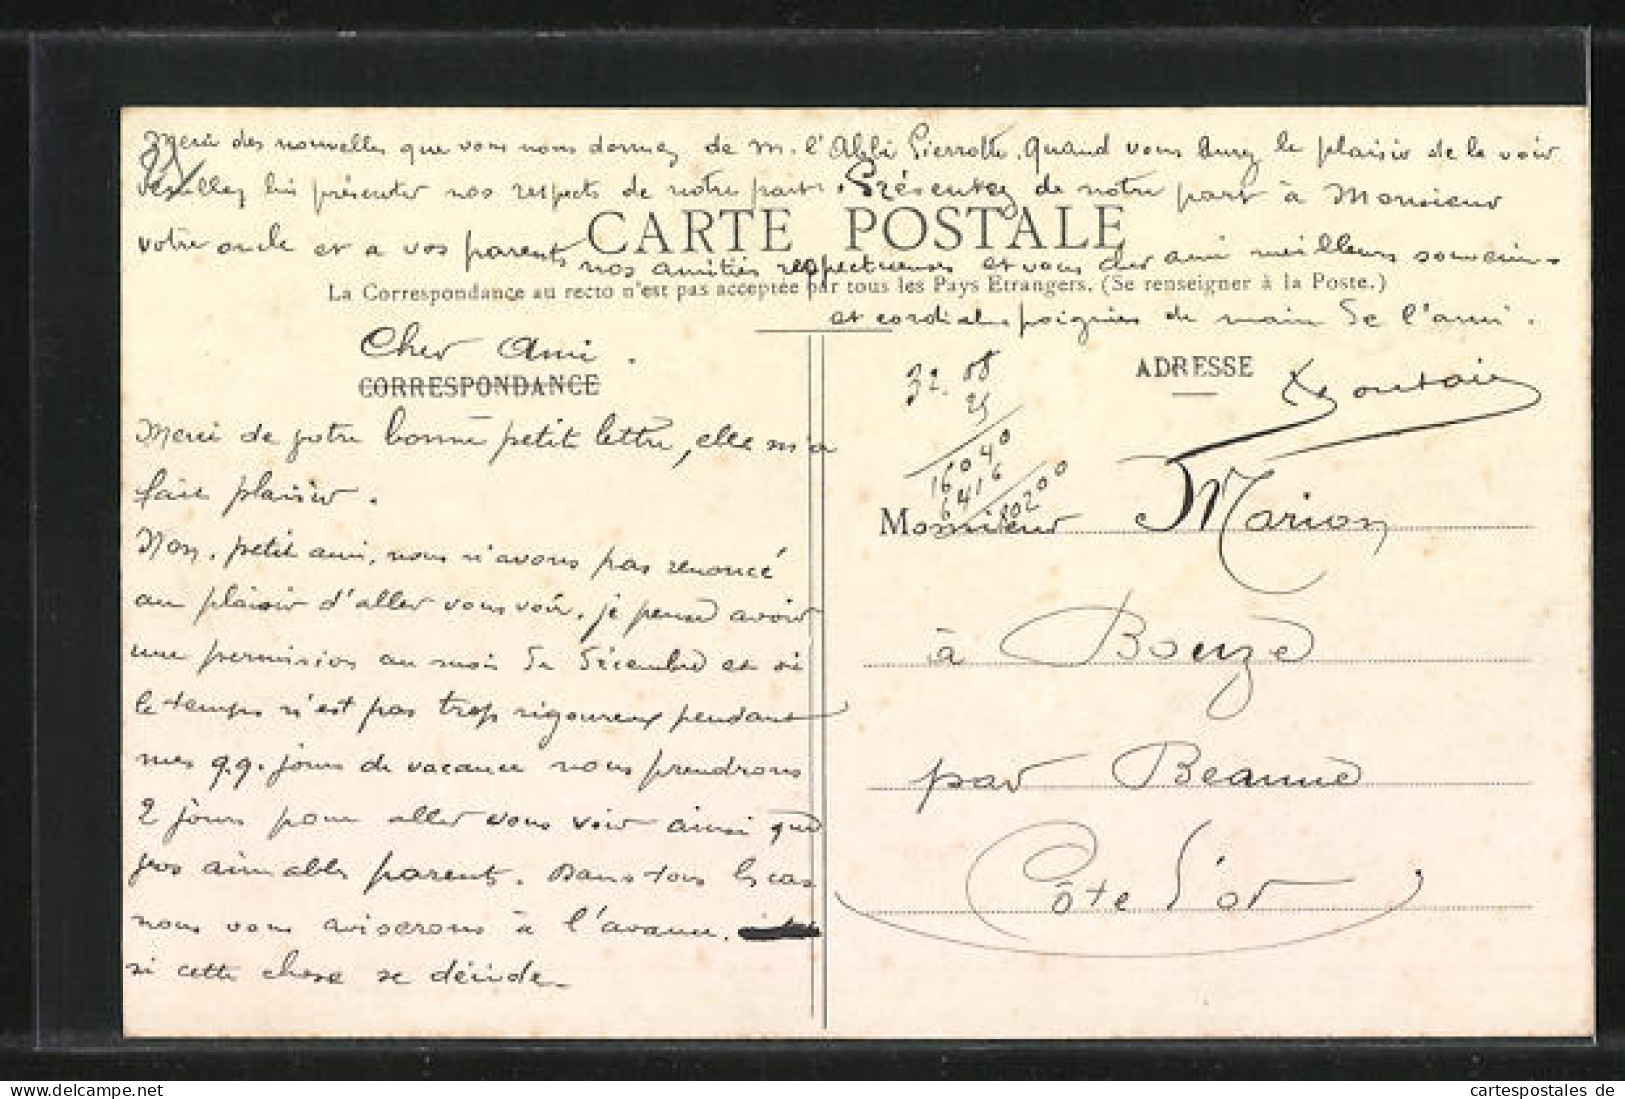 Merci des nouvelles que vous nous donnez de M. l'Abbé Pierrotte. Quand vous aurez le plaisir de le voir
veuillez lui présenter nos respects de notre part. Présentez de notre part à Monsieur
votre oncle et a vos parents nos amitiés respectueuses et vous cher ami meilleurs souvenirs
CARTE POSTALE
La Correspondance au recto n'est pas acceptée par tous les Pays Etrangers. (Se renseigner à la Poste.)
et cordiales poignées de main de l'ami.
Cher Ami.
CORRESPONDANCE
Merci de votre bonne petit lettre, elle m'a
fait plaisir.
Non, petit ami, nous n'avons pas renoncé
au plaisir d'aller vous voir, je pense avoir
une permission au mois de décembre et si
le temps n'est pas trop rigoureux pendant
mes q.q. jours de vacance nous prendrons
2 jours pour aller vous voir ainsi que
vos aimables parents. Dans tous les cas
nous vous aviserons à l'avance.
si cette chose se décide.
ADRESSE
32.08
25
16040
6416
80200
Monsieur Marion
à Bouze
par Beaune
Côte d'or
cartespostales de